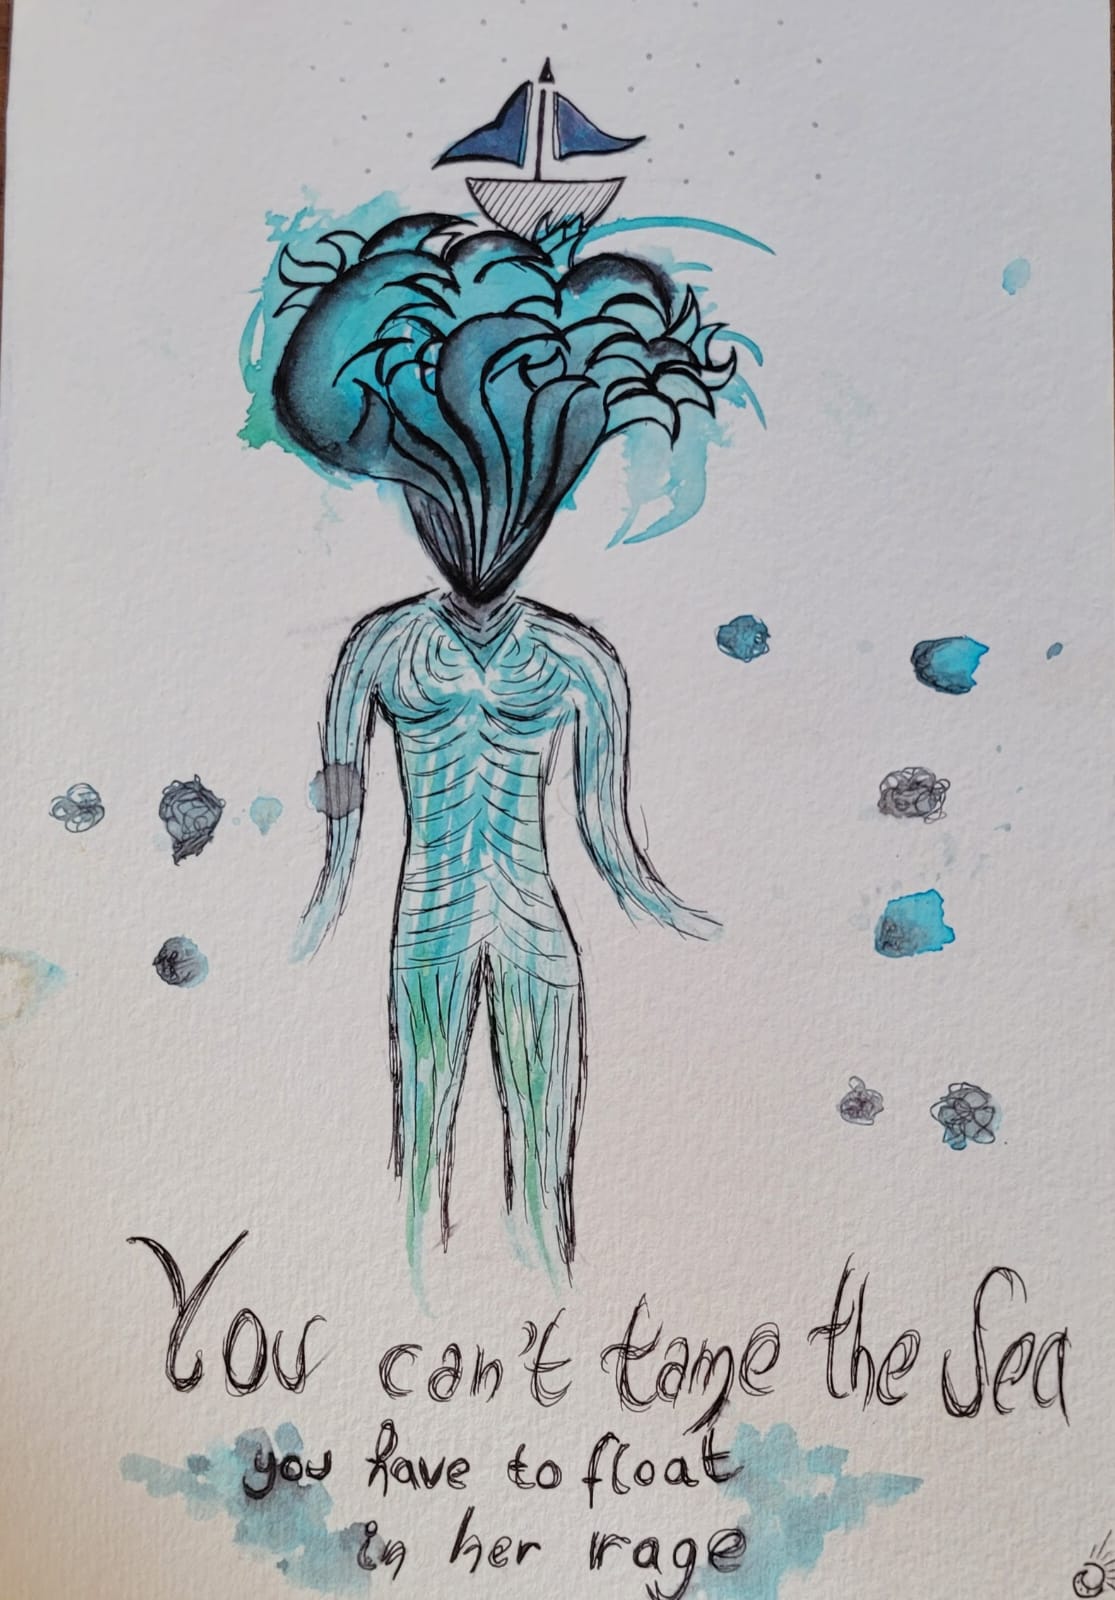 You can't tame the Sea
you have to float
in her rage